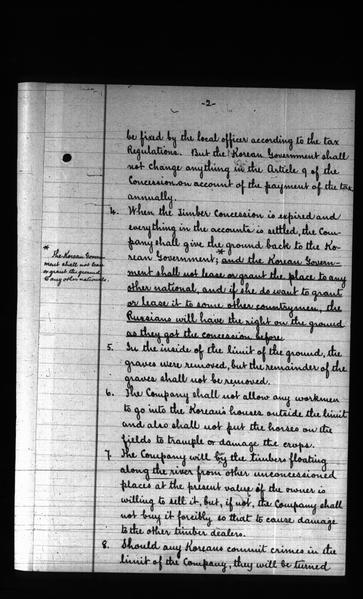 -2-
be fixed by the local officer according to the tax
Regulations. But the Korean Government shall
not change anything in the Article 9 of the
Concession on account of the payment of the tax
annually.
4. When the Timber Concession is expired and
everything in the accounts is settled, the Com-
pany shall give the ground back to the Ko-
rean Government;* and the Korean Govern-
ment shall not lease or grant the place to any
other national, and if she do want to grant
or lease it to some other countrymen, the
Russians will have the right on the ground
as they got the concession before.
* The Korean Govern-
ment shall not lease
or grant the ground
to any other nationals.
5. In the inside of the limit of the ground, the
graves were removed, but the remainder of the
graves shall not be removed.
6. The Company shall not allow any workmen
to go into the Koreans houses outside the limit
and also shall not put the horses on the
fields to trample or damage the crops.
7. The Company will buy the timbers floating
along the river from other unconcessioned
places at the present value if the owner is
willing to sell it, but, if not, the Company shall
not buy it forcibly so that to cause damage
to the other timber dealers.
8. Should any Koreans commit crimes in the
limit of the Company, they will be turned